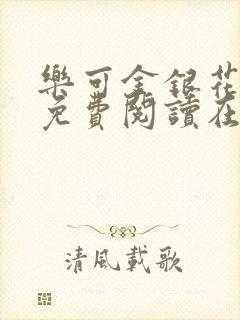 樂可金銀花
免費閱讀在
清風載歌